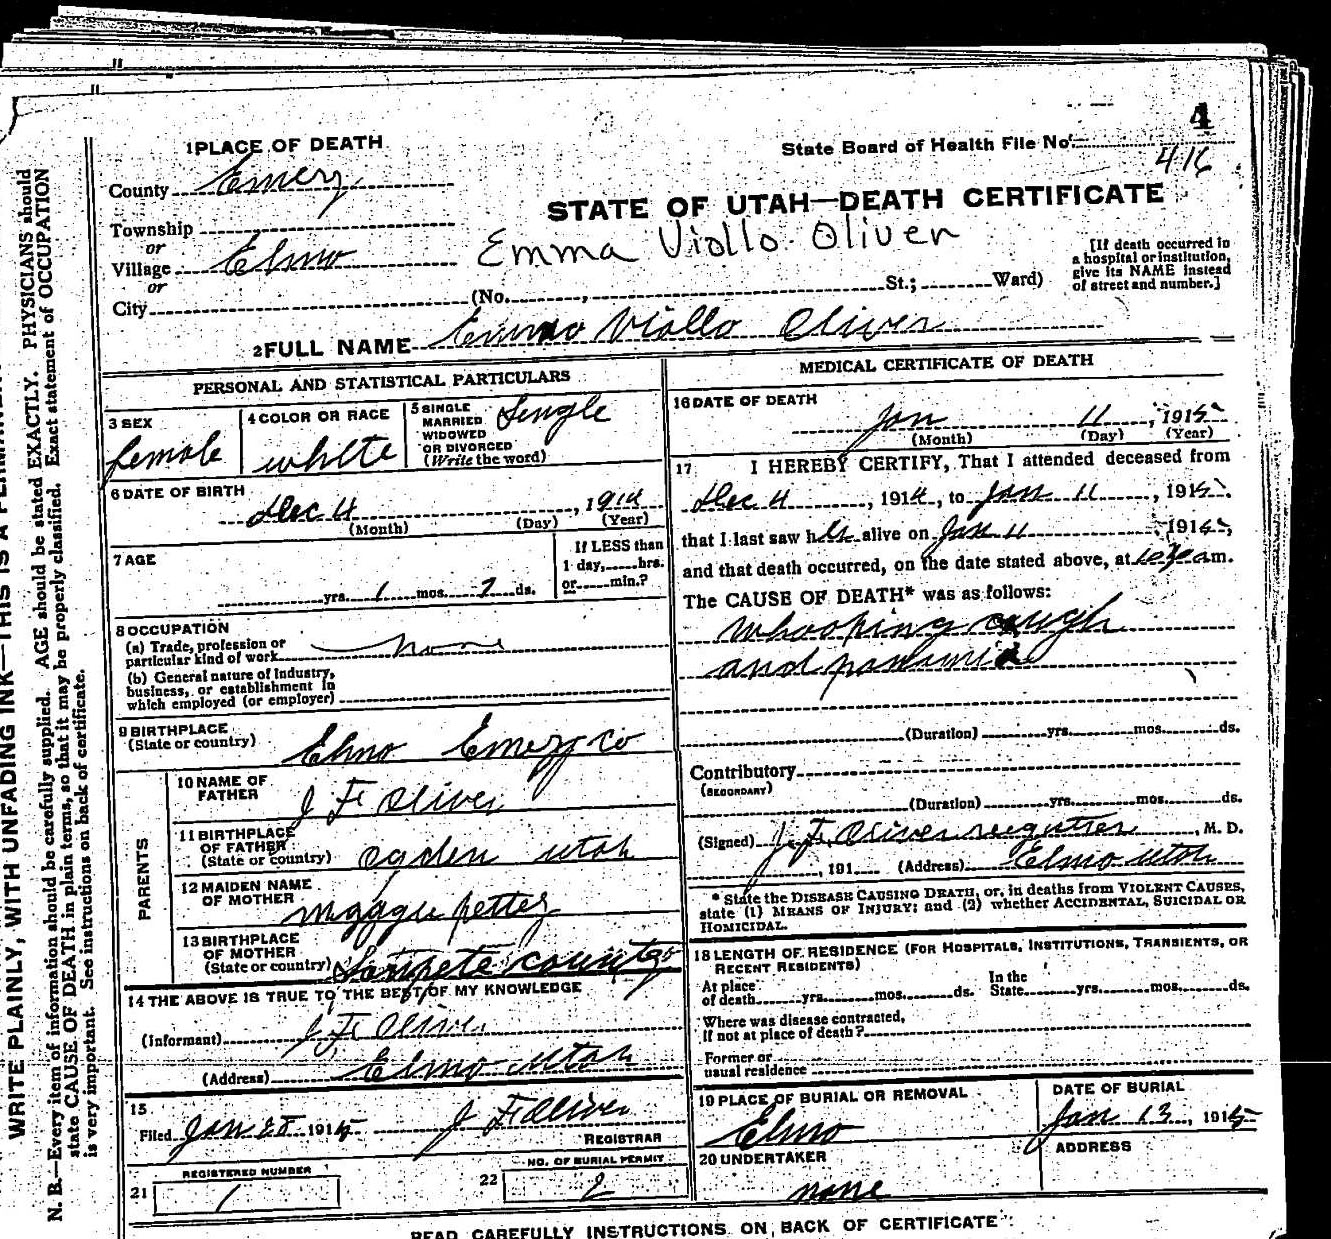 4
1 PLACE OF DEATH
State Board of Health File No.
416
County Emery
STATE OF UTAH—DEATH CERTIFICATE
Township
or
Village Elmo
Emma Viollo Oliver
[If death occurred in
a hospital or institution,
give its NAME instead
of street and number.]
or
City (No. , St.; Ward)
2 FULL NAME Emma Viollo Oliver
PERSONAL AND STATISTICAL PARTICULARS
3 SEX
female
4 COLOR OR RACE
white
5 SINGLE
MARRIED
WIDOWED
OR DIVORCED
(Write the word)
Single
6 DATE OF BIRTH
Dec 4 , 1914
(Month) (Day) (Year)
7 AGE
yrs. 1 mos. 7 ds.
If LESS than
1 day, hrs.
or min.?
8 OCCUPATION
(a) Trade, profession or
particular kind of work none
(b) General nature of Industry,
business, or establishment in
which employed (or employer)
9 BIRTHPLACE
(State or country) Elmo Emery co
PARENTS
10 NAME OF
FATHER
J F Oliver
11 BIRTHPLACE
OF FATHER
(State or country) Ogden utah
12 MAIDEN NAME
OF MOTHER
13 BIRTHPLACE
OF MOTHER
(State or country) Sanpete county
14 THE ABOVE IS TRUE TO THE BEST OF MY KNOWLEDGE
(Informant) J F Oliver
(Address) Elmo utah
15
Filed Jan 28 1915 J F Oliver
REGISTRAR
REGISTERED NUMBER
21 1
NO. OF BURIAL PERMIT
22 2
MEDICAL CERTIFICATE OF DEATH
16 DATE OF DEATH
Jan 11 , 1915
(Month) (Day) (Year)
17 I HEREBY CERTIFY, That I attended deceased from
Dec 4 , 1914, to Jan 11 , 1915,
that I last saw her alive on Jan 11 , 1915,
and that death occurred, on the date stated above, at am.
The CAUSE OF DEATH* was as follows:
whooping cough
and
(Duration) yrs. mos. ds.
Contributory
(SECONDARY)
(Duration) yrs. mos. ds.
(Signed) J. F. Oliver , M. D.
, 191 (Address) Elmo utah
* State the DISEASE CAUSING DEATH, or, in deaths from VIOLENT CAUSES,
state (1) MEANS OF INJURY; and (2) whether ACCIDENTAL, SUICIDAL OR
HOMICIDAL.
18 LENGTH OF RESIDENCE (FOR HOSPITALS, INSTITUTIONS, TRANSIENTS, OR
RECENT RESIDENTS)
At place
of death yrs. mos. ds.
In the
State yrs. mos. ds.
Where was disease contracted,
If not at place of death?
Former or
usual residence
19 PLACE OF BURIAL OR REMOVAL
Elmo
DATE OF BURIAL
Jan 13 , 1915
20 UNDERTAKER
none
ADDRESS
READ CAREFULLY INSTRUCTIONS ON BACK OF CERTIFICATE
WRITE PLAINLY, WITH UNFADING INK—THIS IS A
N. B.—Every item of information should be carefully supplied. AGE should be stated EXACTLY. PHYSICIANS should
state CAUSE OF DEATH in plain terms, so that it may be properly classified. Exact statement of OCCUPATION
is very important. See instructions on back of certificate.